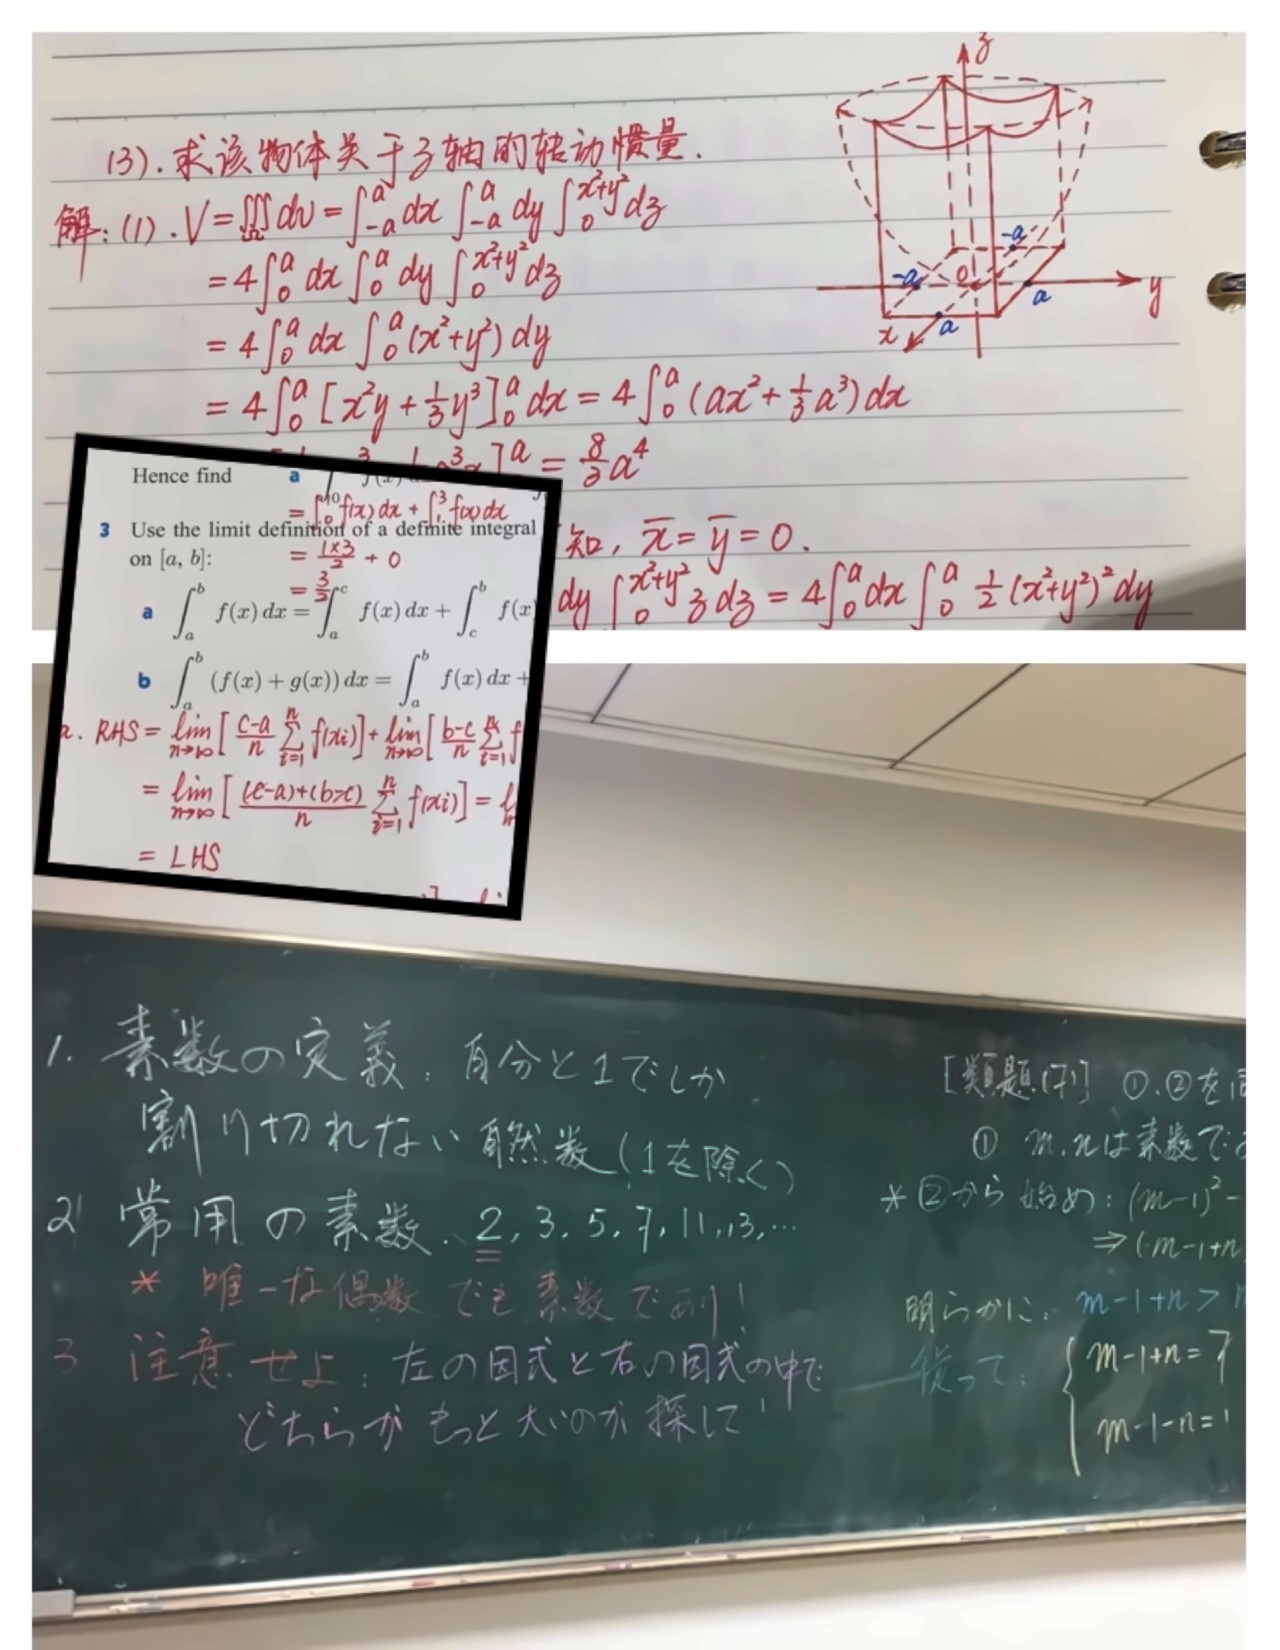 (3). 求该物体关于z轴的转动惯量.
解: (1). V = ∭_Ω dv = ∫_{-a}^{a} dx ∫_{-a}^{a} dy ∫_0^{x²+y²} dz
= 4∫_0^a dx ∫_0^a dy ∫_0^{x²+y²} dz
= 4∫_0^a dx ∫_0^a (x²+y²) dy
= 4∫_0^a [x²y + 1/3 y³]_0^a dx = 4∫_0^a (ax² + 1/3 a³) dx
]^a = 8/3 a⁴
知, x̄ = ȳ = 0.
dy ∫_0^{x²+y²} z dz = 4∫_0^a dx ∫_0^a 1/2 (x²+y²)² dy
z
-a
-a
0
a
y
x
a
Hence find a
= ∫ f(x) dx + ∫ f(x) dx
3 Use the limit definition of a definite integral
on [a, b]:
= 1×3/2 + 0
= 3/2
a ∫_a^b f(x) dx = ∫_a^c f(x) dx + ∫_c^b f(x
b ∫_a^b (f(x) + g(x)) dx = ∫_a^b f(x) dx +
a. RHS = lim_{n→∞} [ (c-a)/n Σ_{i=1}^n f(xi)] + lim_{n→∞} [ (b-c)/n Σ_{i=1}^n f
= lim_{n→∞} [ ((c-a)+(b-c))/n Σ_{i=1}^n f(xi)] =
= LHS
1. 素数の定義: 自分と1でしか
割り切れない自然数(1を除く)
2 常用の素数. 2, 3, 5, 7, 11, 13, …
* 唯一な偶数でも素数であり!
3 注意せよ: 左の因式と右の因式の中で
どちらがもっと大いのか探して!
[類題(7)] ①.②を同
① m.nは素数であ
* ②から始め: (m-1)² -
⇒ (m-1+n
明らかに: m-1+n >
従って: { m-1+n = 7
m-1-n = 1